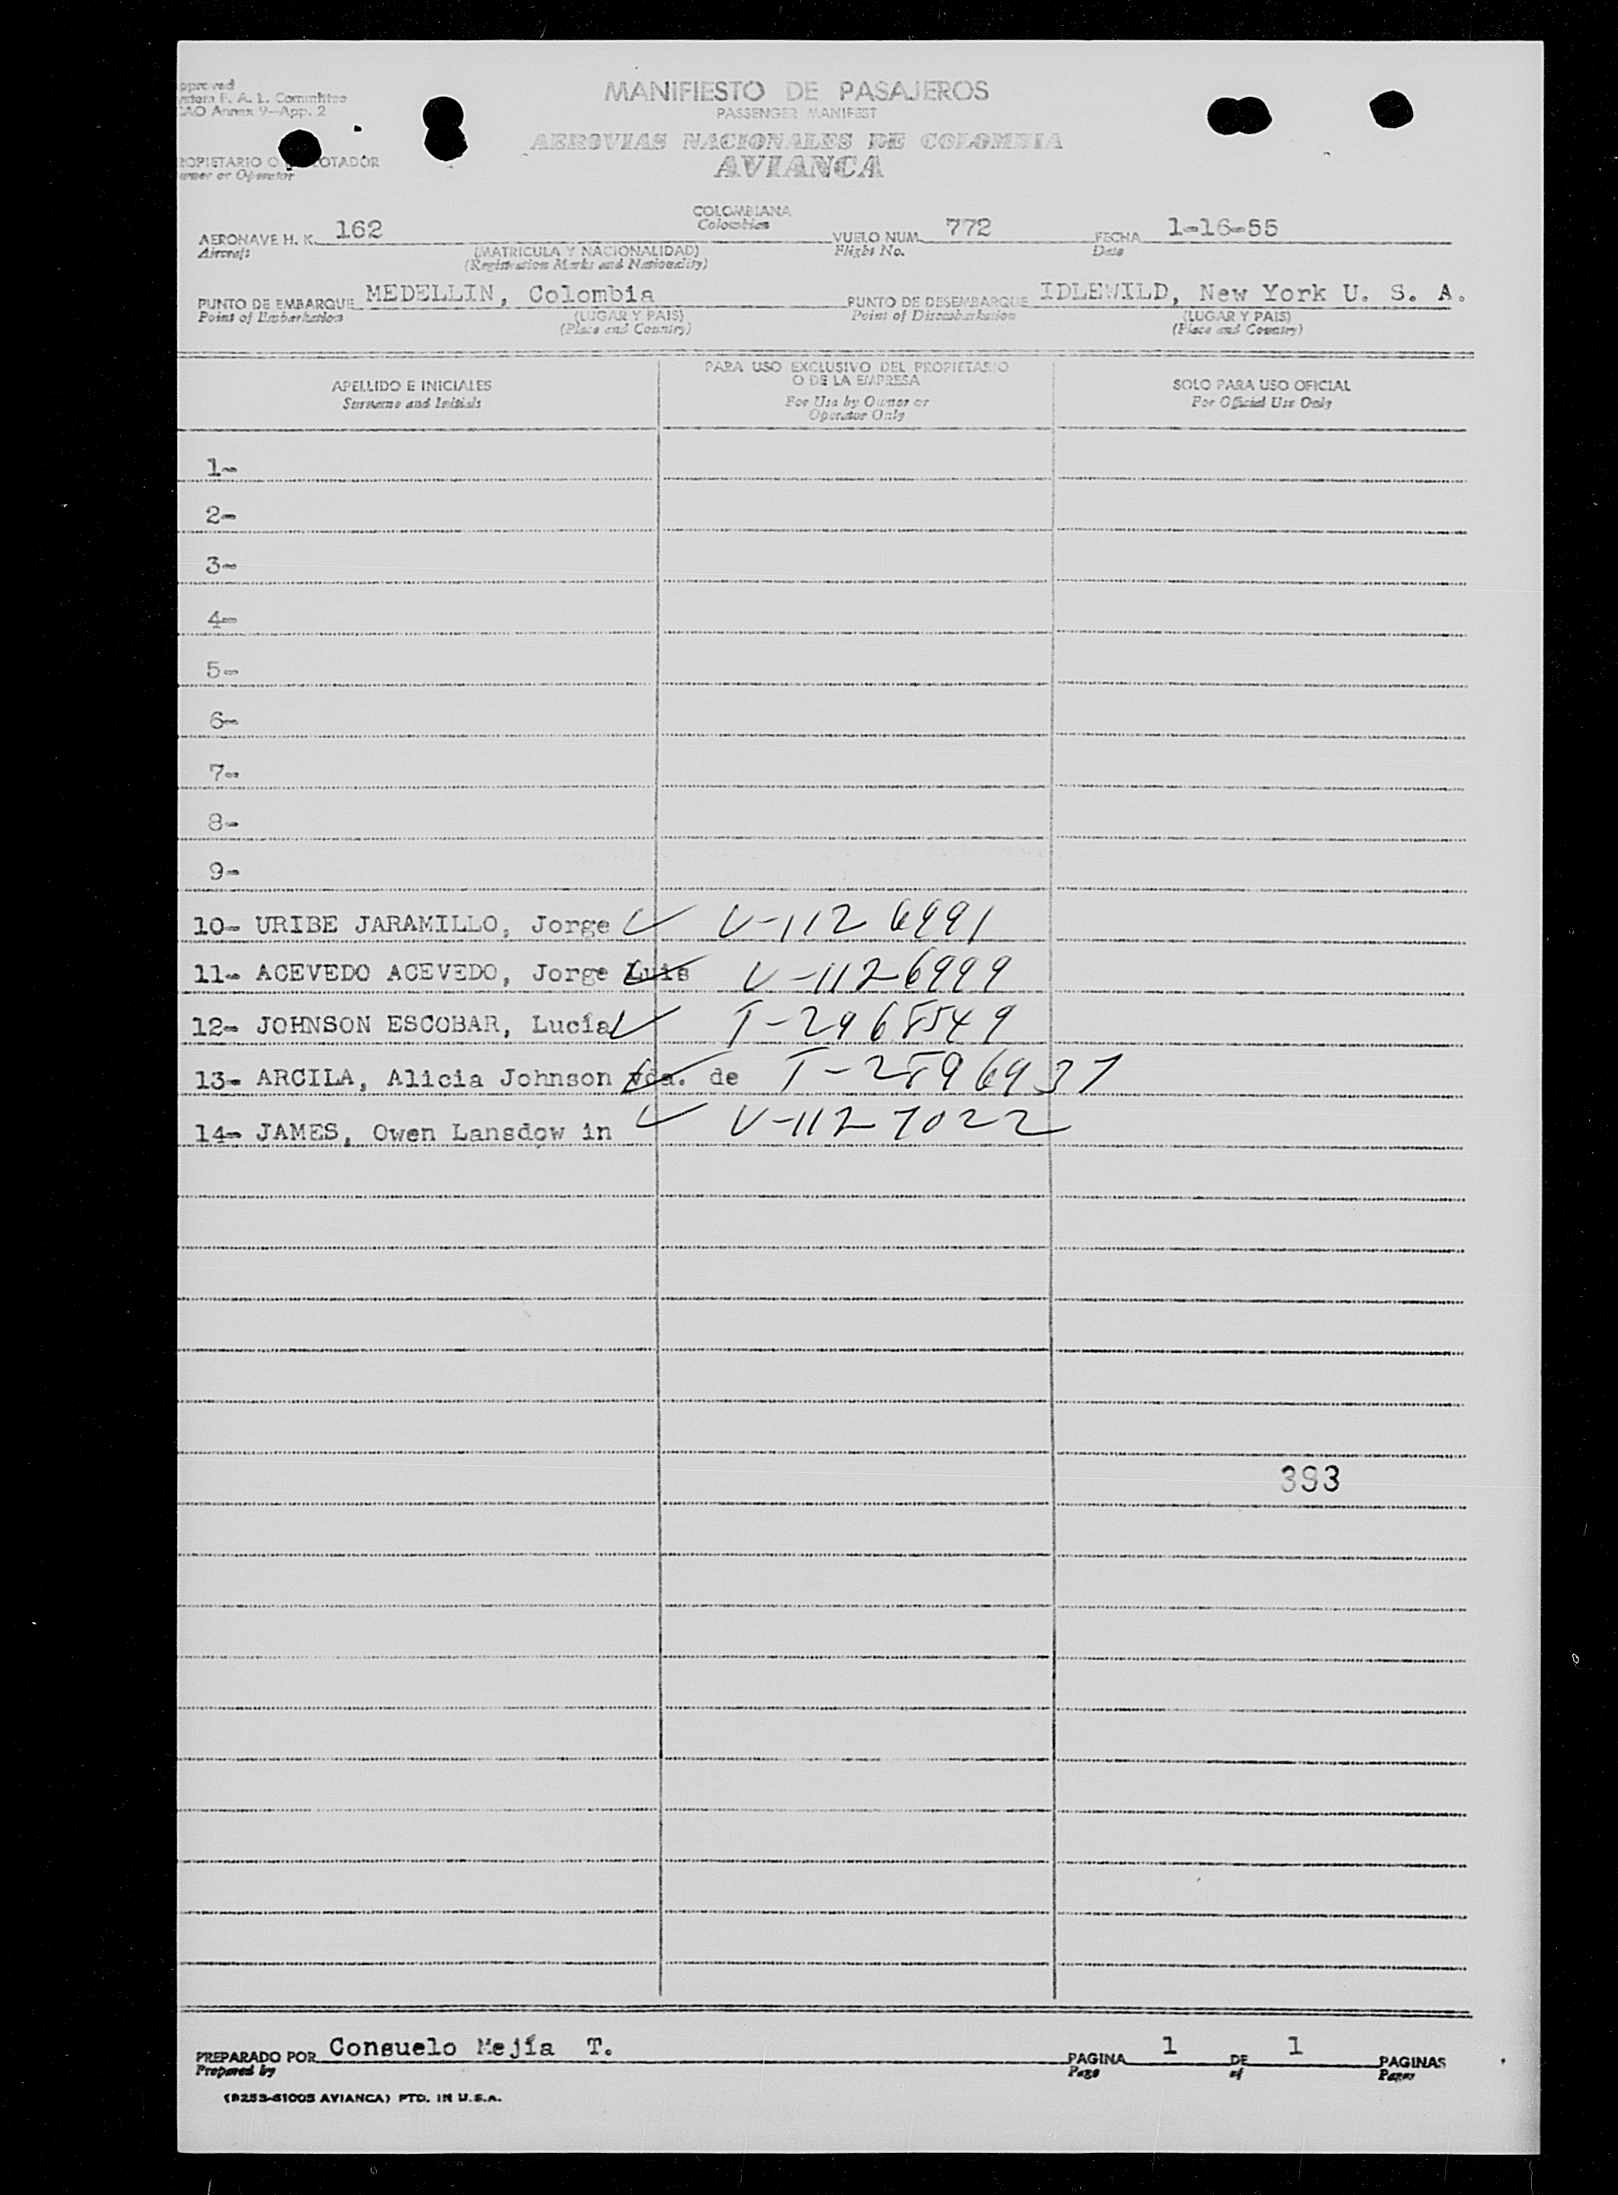 pproved
ystem F. A. L. Committee
CAO Annex 9—App. 2
MANIFIESTO DE PASAJEROS
PASSENGER MANIFEST
AEROVIAS NACIONALES DE COLOMBIA
AVIANCA
ROPIETARIO O OTADOR
wner or Operator
COLOMBIANA
Colombian
AERONAVE H. K. 162
Aircraft
(MATRICULA Y NACIONALIDAD)
(Registration Marks and Nationality)
VUELO NUM. 772
Flight No.
FECHA 1-16-55
Date
PUNTO DE EMBARQUE MEDELLIN, Colombia
Point of Embarkation
(LUGAR Y PAIS)
(Place and Country)
PUNTO DE DESEMBARQUE IDLEWILD, New York U. S. A.
Point of Disembarkation
(LUGAR Y PAIS)
(Place and Country)
APELLIDO E INICIALES
Surname and Initials
PARA USO EXCLUSIVO DEL PROPIETARIO
O DE LA EMPRESA
For Use by Owner or
Operator Only
SOLO PARA USO OFICIAL
For Official Use Only
1-
2-
3-
4-
5-
6-
7-
8-
9-
10- URIBE JARAMILLO, Jorge V-1126991
11- ACEVEDO ACEVEDO, Jorge Luis V-1126999
12- JOHNSON ESCOBAR, Lucía T-2968549
13- ARCILA, Alicia Johnson vda. de T-2896937
14- JAMES, Owen Lansdow in V-1127022
393
PREPARADO POR Consuelo Mejía T.
Prepared by
PAGINA 1 DE 1 PAGINAS
Page of Pages
(8253-61005 AVIANCA) PTD. IN U.S.A.